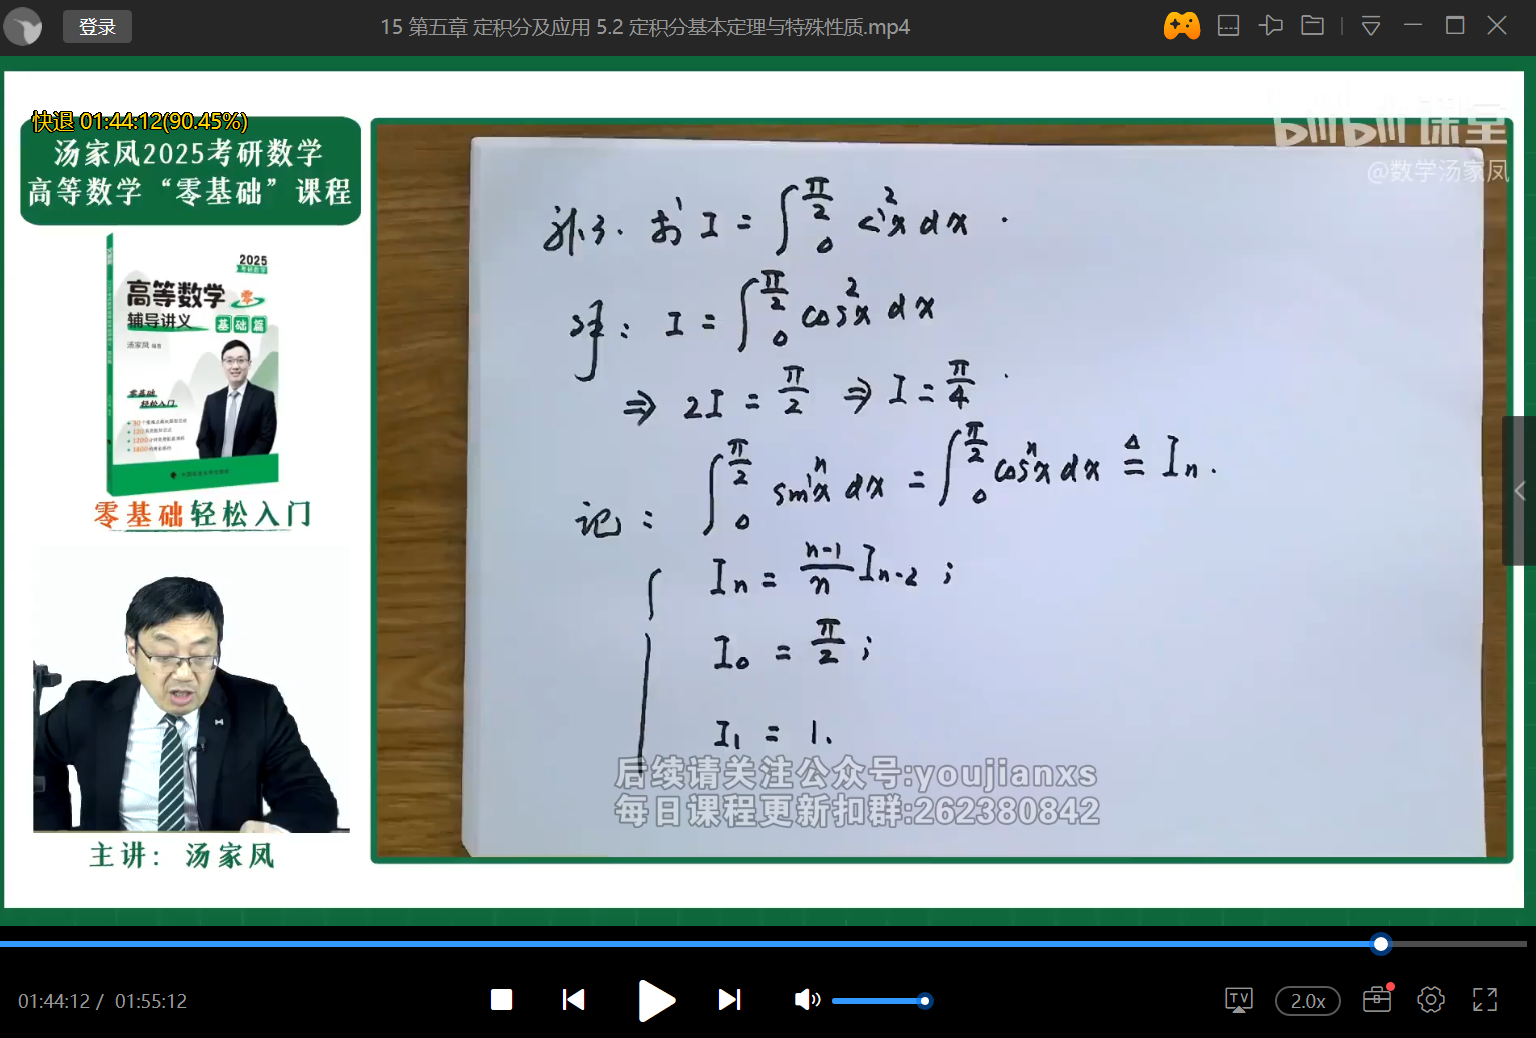 登录
15 第五章 定积分及应用 5.2 定积分基本定理与特殊性质.mp4
快退 01:44:12(90.45%)
汤家凤2025考研数学
高等数学“零基础”课程
bilibili 课堂
@数学汤家凤
2025
考研数学
高等数学 零
辅导讲义 基础篇
汤家凤 编著
零基础
轻松入门
零基础轻松入门
主讲：汤家凤
例3. 求 I = ∫₀^(π/2) sin²x dx .
解: I = ∫₀^(π/2) cos²x dx
⇒ 2I = π/2 ⇒ I = π/4 .
记: ∫₀^(π/2) sinⁿx dx = ∫₀^(π/2) cosⁿx dx ≜ Iₙ .
Iₙ = (n-1)/n Iₙ₋₂ ;
I₀ = π/2 ;
I₁ = 1.
后续请关注公众号:youjianxs
每日课程更新扣群:262380842
01:44:12 / 01:55:12
TV
2.0x